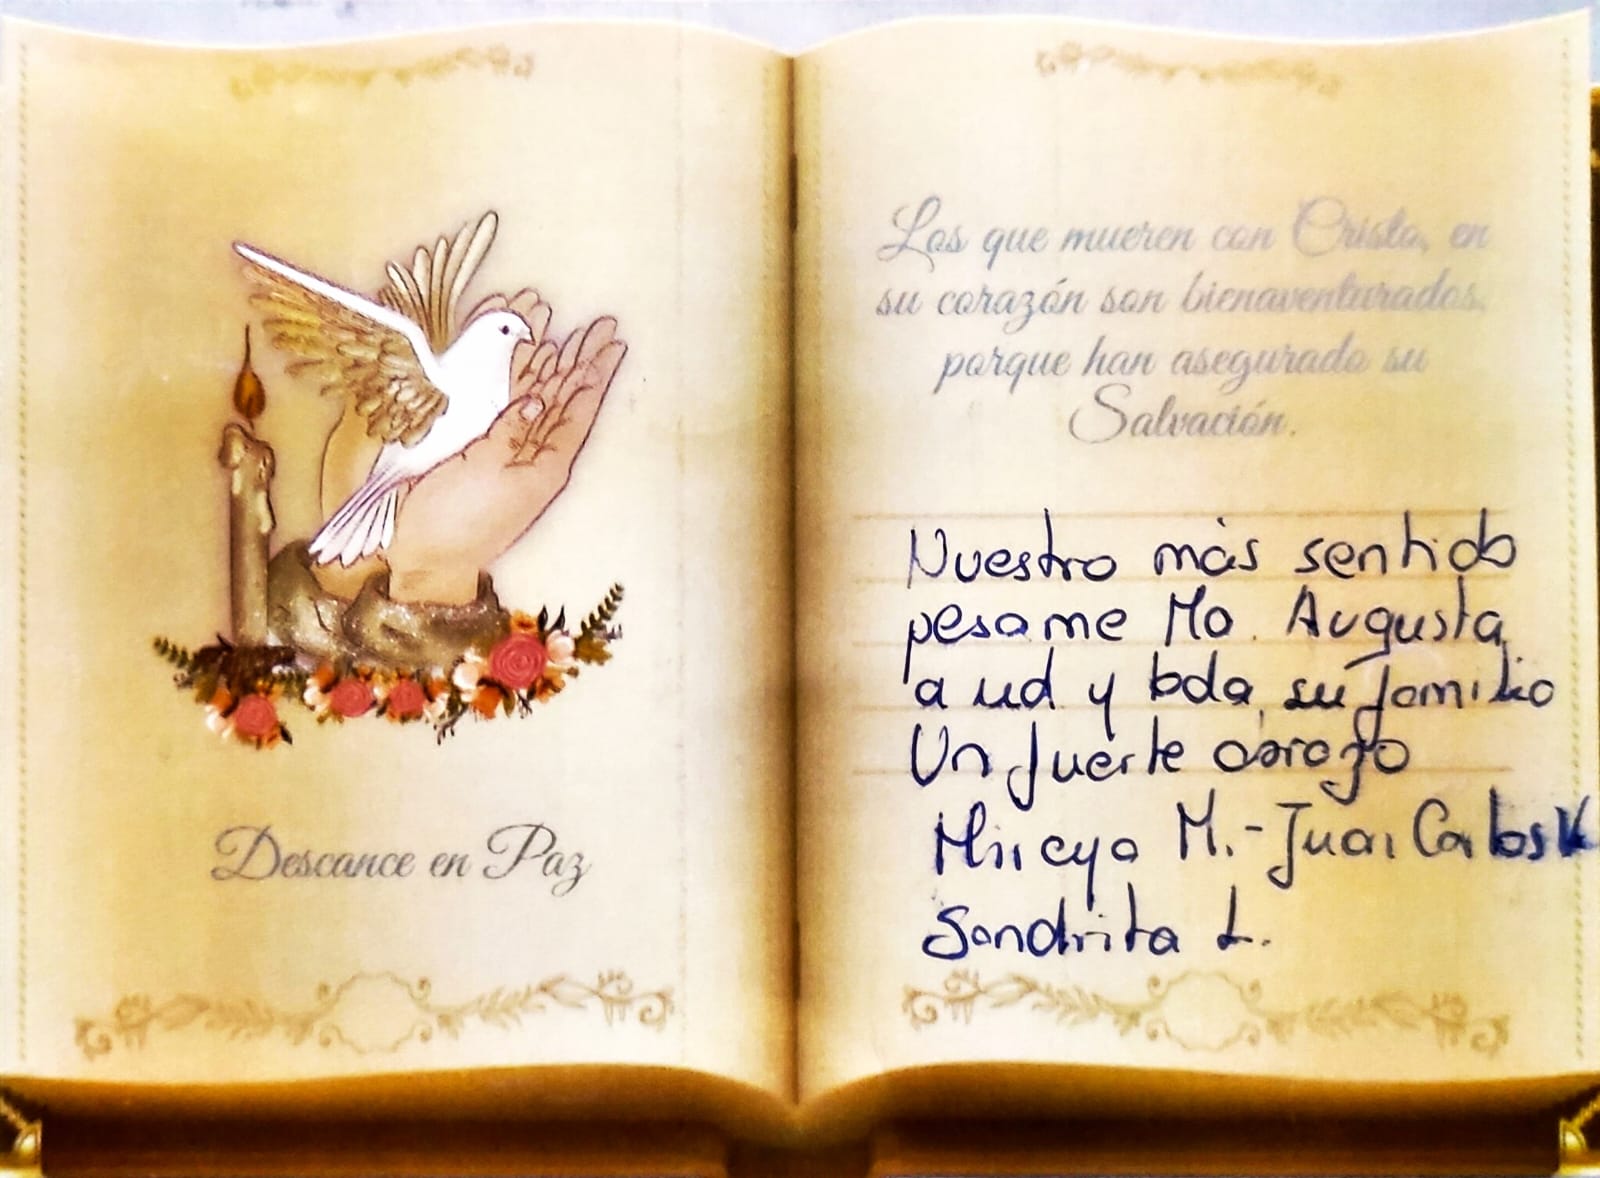 Descance en Paz
Los que mueren con Cristo, en
su corazón son bienaventurados,
porque han asegurado su
Salvación.
Nuestro más sentido
pesame Ma. Augusta
a ud y toda su familia
Un fuerte abrazo
Mireya M.- Juan Carlos V
Sandrita L.